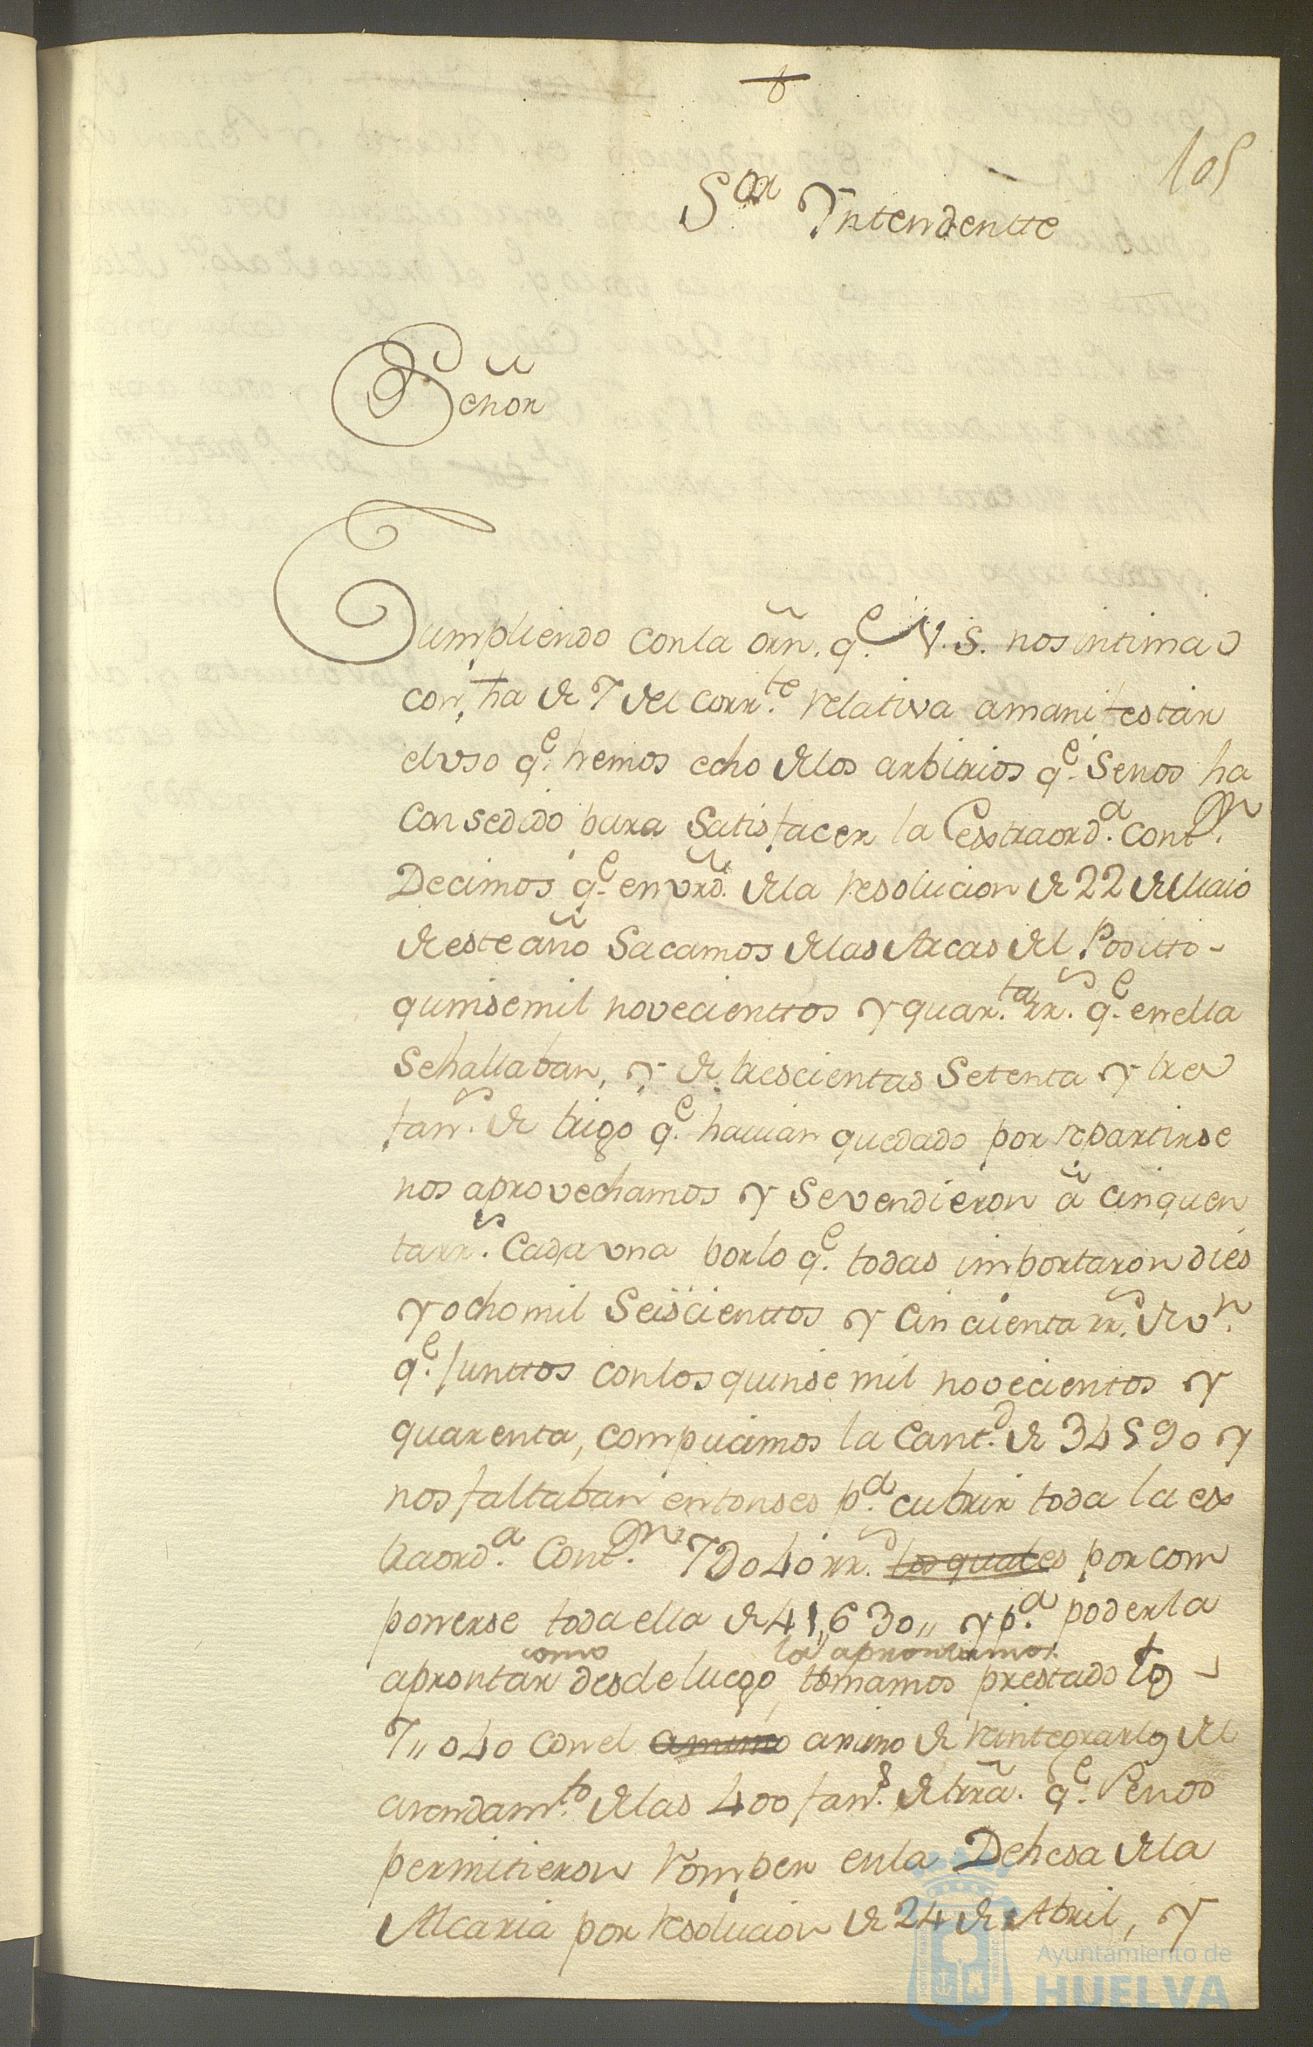 105
Sor Yntendentte
Señor
Cumpliendo conla orñ. qe. V.S. nos intima
con fha de 7 del corrte. relativa amanifestar
eluso qe. hemos echo delos arbitrios qe. Senos ha
consedido para Satisfacer la exstraorda. conton.
Decimos qe. en vrd. dela resolucion de 22 de Maio
de este año Sacamos delas Arcas del Positto
quinsemil novecienttos y quarta. rrs. qe. enella
Sehallaban, y de trescientas Setenta y tres
fans. de trigo qe. havian quedado por repartirse
nos aprovechamos y Sevendieron â cinquen
tarrs. Cada una porlo qe. todas importaron dies
y ochomil Seiscienttos y Cincuenta rrs. de vn.
qe. Junttos conlos quinse mil novecientos y
quarenta, compucimos la Cantd. de 34590 y
nos faltaban entonses pa. cubrir toda la ex
traorda. Conton. 7D040 rrs. los quales por com
ponerse toda ella de 41,,630,, y pa. poderla
como la aprontamos
aprontar desde luego, tomamos prestado los
7,,040 conel animo animo de reintegrarlos del
arrendamto. delas 400 fans. de trrã. qe. Senos
permitieron romper enla Dehesa dela
Alcaria por resolucion de 24 de Abril, y
Ayuntamiento de
HUELVA